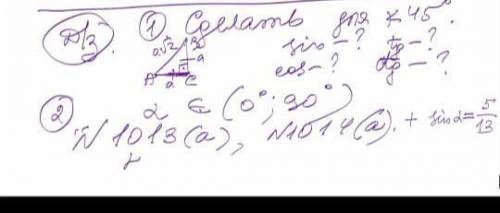 Д/з. ① Сделать для ∠45°.
a√2 B a sin-? tg-?
A a C cos-? ctg-?
② α ∈ (0°; 90°)
N1013(а), N1014(а). + sinα=5/13